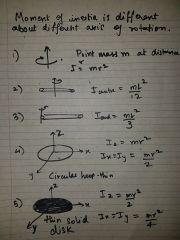 Moment of inertia is different
about different axis of rotation.
1) Point mass m at distance r
I = mr²
2) I centre = ml²/12
3) I end = ml²/3
4) z
x
y
I z = mr²
I x = I y = mr²/2
Circular hoop-thin
5) z
x
y
I z = mr²/2
I x = I y = mr²/4
thin solid
disk